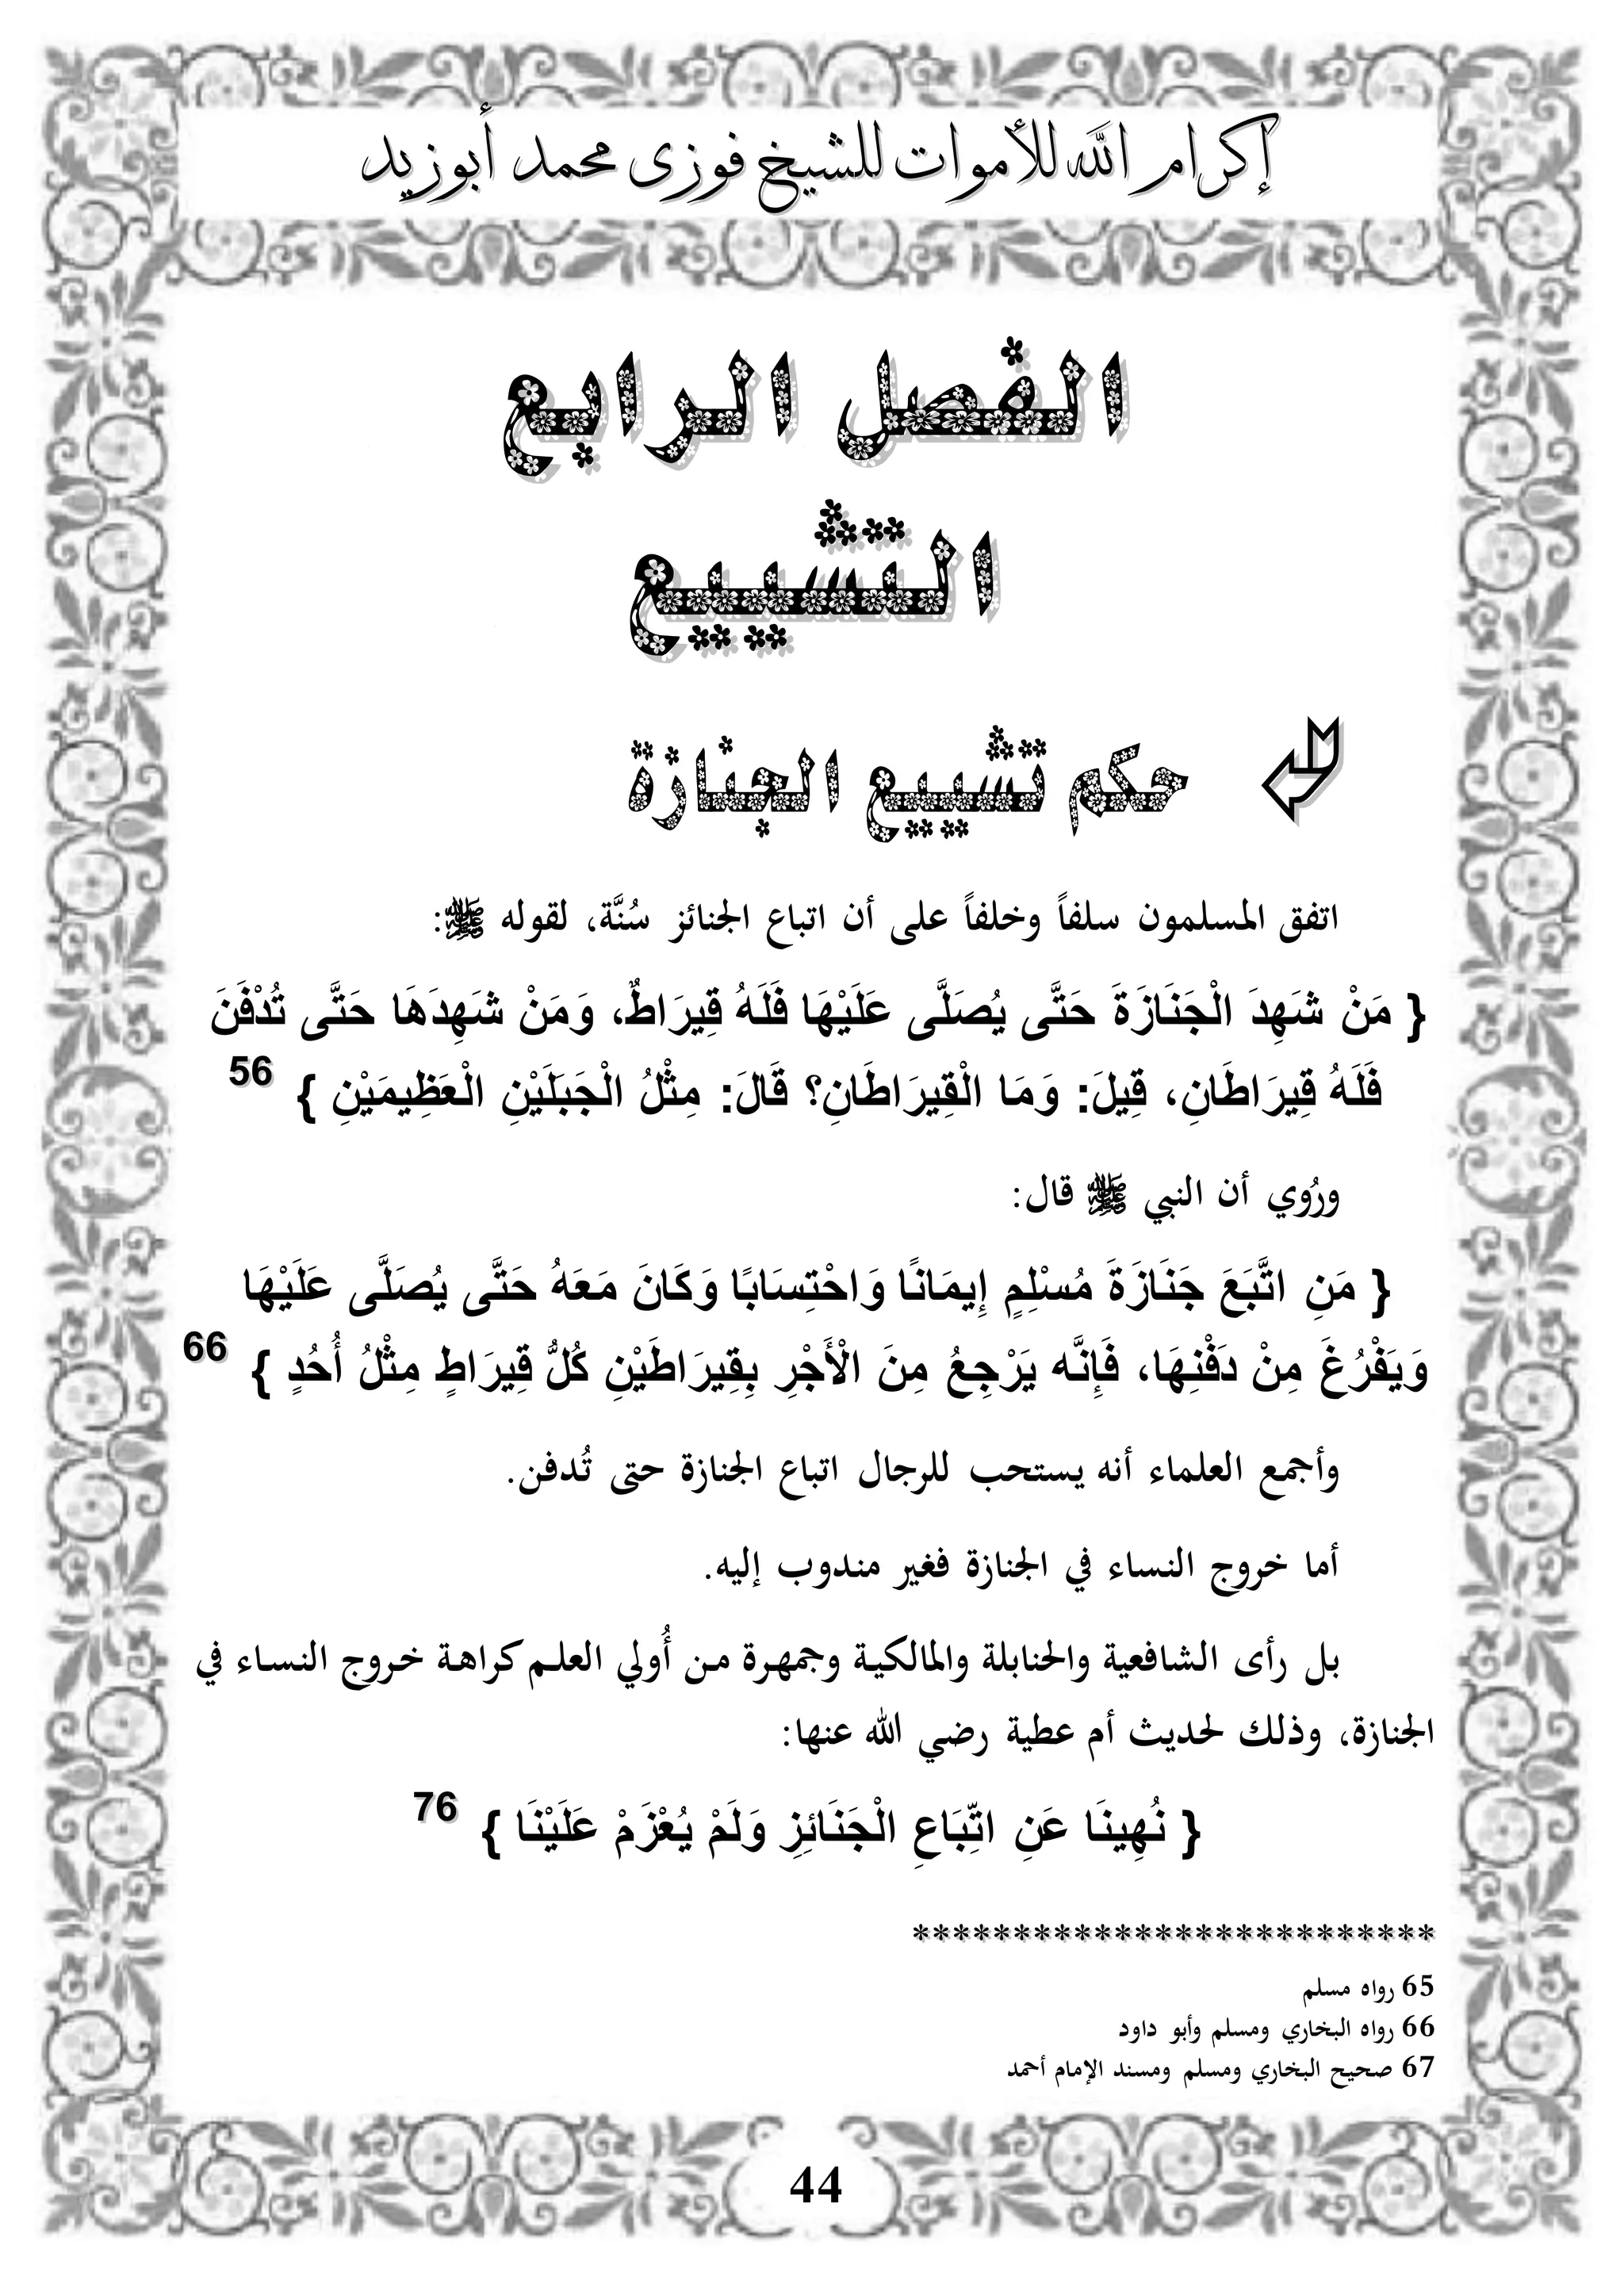 إكرام الله للأموات للشيخ فوزى محمد أبوزيد
الفصل الرابع
التشييع
حكم تشييع الجنازة
اتفق المسلمون سلفاً وخلفاً على أن اتباع الجنائز سُنَّة، لقوله ﷺ:
{ مَنْ شَهِدَ الْجَنَازَةَ حَتَّى يُصَلَّى عَلَيْهَا فَلَهُ قِيرَاطٌ، وَمَنْ شَهِدَهَا حَتَّى تُدْفَنَ
فَلَهُ قِيرَاطَانِ، قِيلَ: وَمَا الْقِيرَاطَانِ؟ قَالَ: مِثْلُ الْجَبَلَيْنِ الْعَظِيمَيْنِ } 56
ورُوي أن النبي ﷺ قال:
{ مَنِ اتَّبَعَ جَنَازَةَ مُسْلِمٍ إِيمَانًا وَاحْتِسَابًا وَكَانَ مَعَهُ حَتَّى يُصَلَّى عَلَيْهَا
وَيَفْرُغَ مِنْ دَفْنِهَا، فَإِنَّه يَرْجِعُ مِنَ الْأَجْرِ بِقِيرَاطَيْنِ كُلُّ قِيرَاطٍ مِثْلُ أُحُدٍ } 66
وأجمع العلماء أنه يستحب للرجال اتباع الجنازة حتى تُدفن.
أما خروج النساء في الجنازة فغير مندوب إليه.
بل رأى الشافعية والحنابلة والمالكية وجمهرة من أُولي العلم كراهة خروج النساء في
الجنازة، وذلك لحديث أم عطية رضي الله عنها:
{ نُهِينَا عَنِ اتِّبَاعِ الْجَنَائِزِ وَلَمْ يُعْزَمْ عَلَيْنَا } 76
**************************
65 رواه مسلم
66 رواه البخاري ومسلم وأبو داود
67 صحيح البخاري ومسلم ومسند الإمام أحمد
44